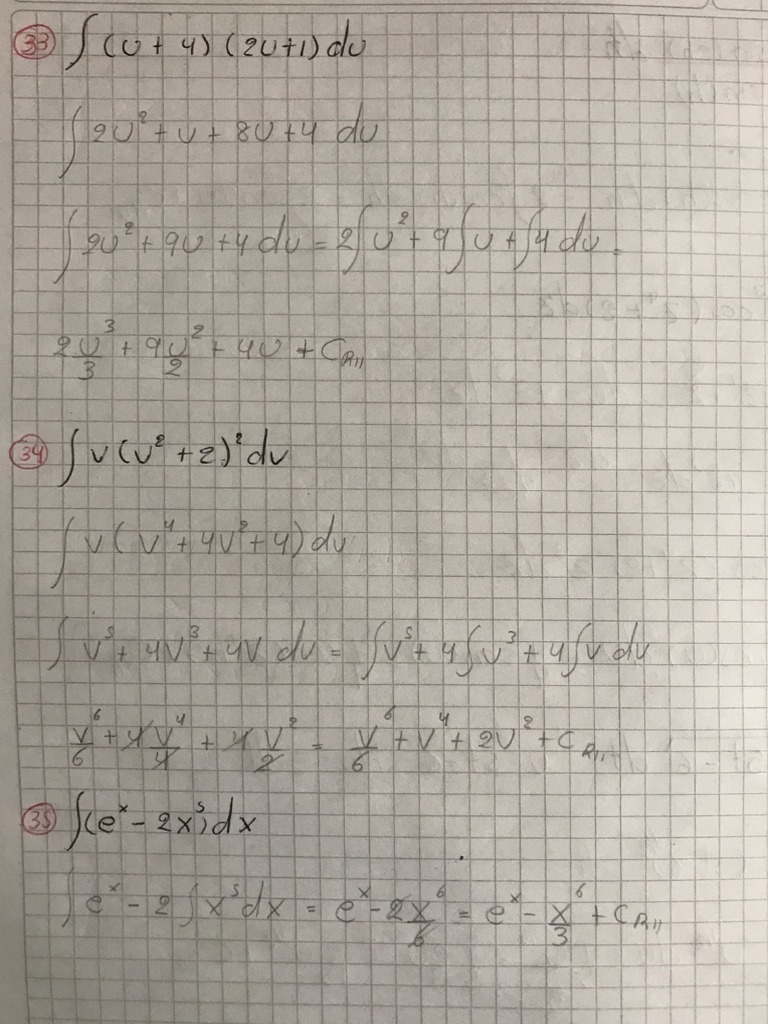 33 ∫(u + 4)(2u+1)du
∫2u² + u + 8u + 4 du
∫2u² + 9u + 4 du = 2∫u² + 9∫u + ∫4 du =
2u³/3 + 9u²/2 + 4u + C R//
34 ∫v(v² + 2)² dv
∫v(v⁴ + 4v² + 4) dv
∫v⁵ + 4v³ + 4v dv = ∫v⁵ + 4∫v³ + 4∫v dv
v⁶/6 + 4v⁴/4 + 4v²/2 = v⁶/6 + v⁴ + 2v² + C R//
35 ∫(eˣ - 2x⁵)dx
∫eˣ - 2∫x⁵dx = eˣ - 2x⁶/6 = eˣ - x⁶/3 + C R//